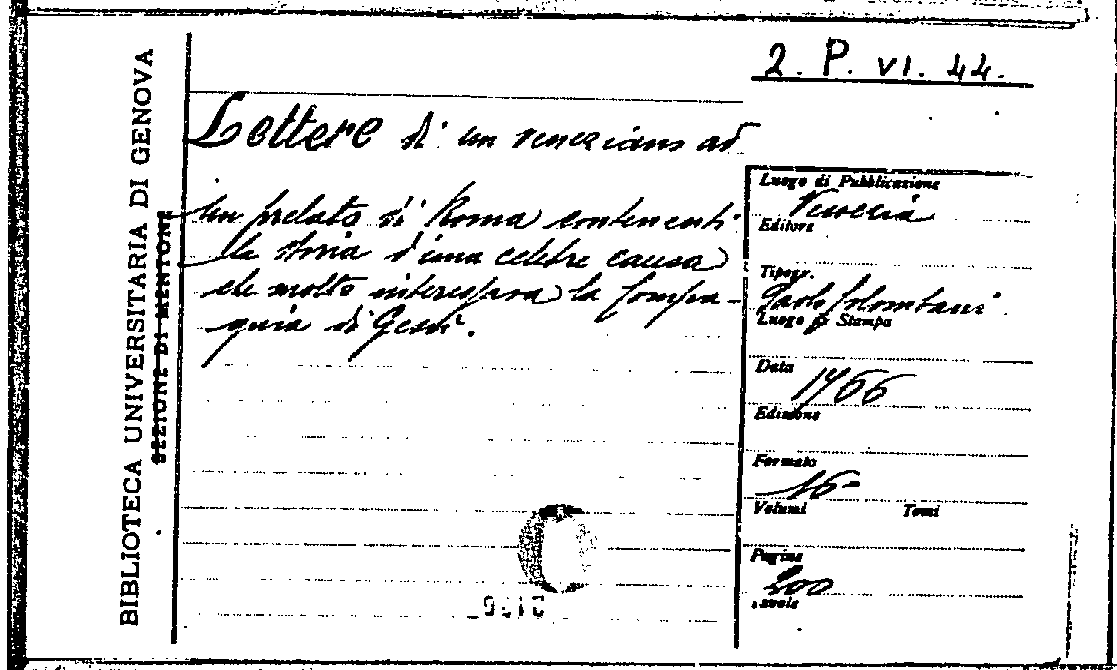 2. P. VI. 44.
BIBLIOTECA UNIVERSITARIA DI GENOVA
SEZIONE DI MENTONE
Lettere di un veneziano ad
un prelato di Roma contenenti
la storia d'una celebre causa
che molto interessava la Compa-
gnia di Gesù.
Luogo di Pubblicazione
Venezia
Editore
Tipogr.
Paolo Colombani
Luogo di Stampa
Data
1766
Edizione
Formato
16°
Volumi Tomi
Pagine
200